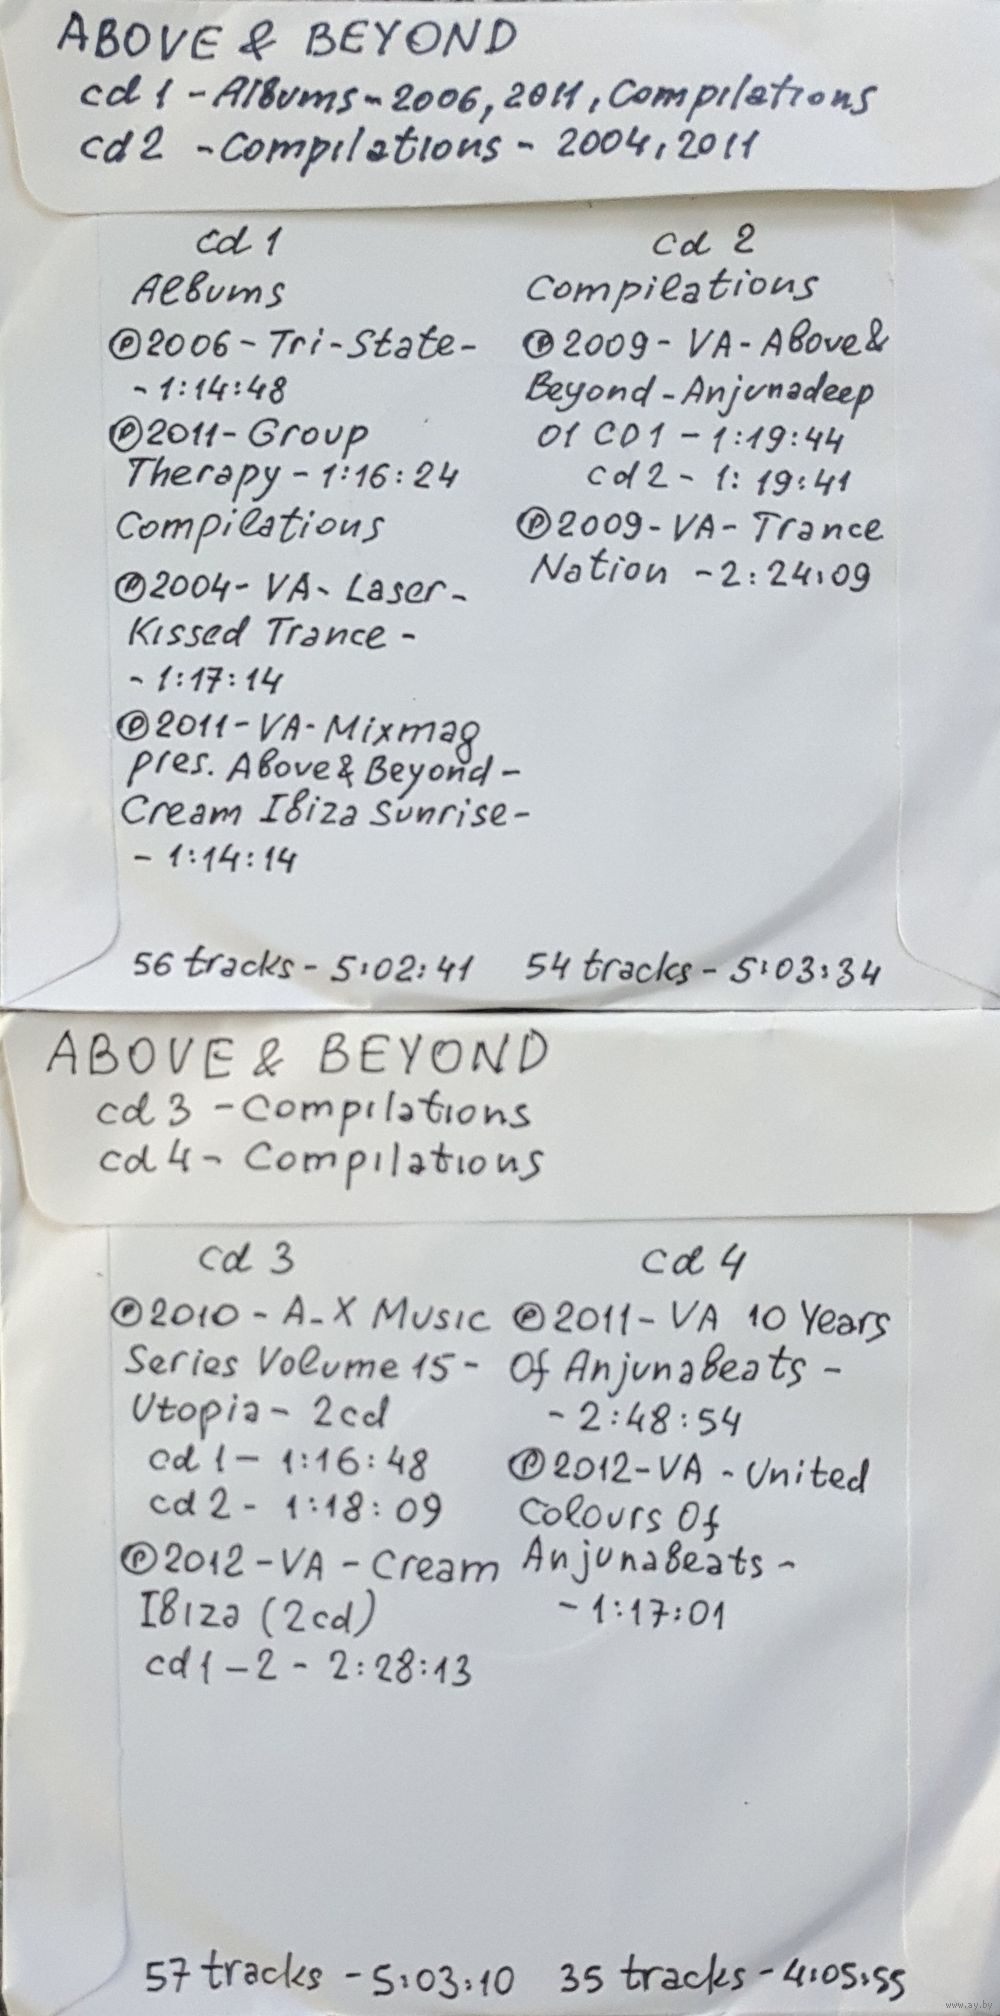 ABOVE & BEYOND
cd 1 - Albums - 2006, 2011, Compilations
cd 2 - Compilations - 2004, 2011
cd 1
Albums
Ⓟ 2006 - Tri-State -
- 1:14:48
Ⓟ 2011 - Group
Therapy - 1:16:24
Compilations
Ⓟ 2004 - VA - Laser-
Kissed Trance -
- 1:17:14
Ⓟ 2011 - VA - Mixmag
pres. Above & Beyond -
Cream Ibiza Sunrise -
- 1:14:14
56 tracks - 5:02:41
cd 2
Compilations
Ⓟ 2009 - VA - Above &
Beyond - Anjunadeep
01 CD1 - 1:19:44
cd 2 - 1:19:41
Ⓟ 2009 - VA - Trance
Nation - 2:24:09
54 tracks - 5:03:34
ABOVE & BEYOND
cd 3 - Compilations
cd 4 - Compilations
cd 3
Ⓟ 2010 - A-X Music
Series Volume 15 -
Utopia - 2cd
cd 1 - 1:16:48
cd 2 - 1:18:09
Ⓟ 2012 - VA - Cream
Ibiza (2cd)
cd 1-2 - 2:28:13
57 tracks - 5:03:10
cd 4
Ⓟ 2011 - VA 10 Years
Of Anjunabeats -
- 2:48:54
Ⓟ 2012 - VA - United
Colours Of
Anjunabeats -
- 1:17:01
35 tracks - 4:05:55
www.ay.by